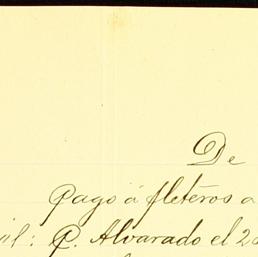 De
Pago á fleteros a
il: P. Alvarado el 2